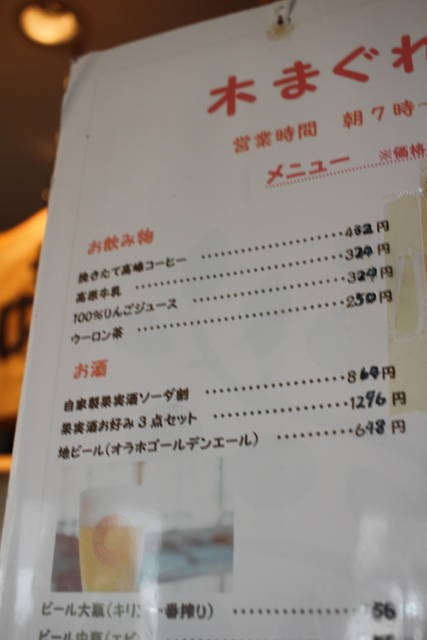 木まぐれ
営業時間 朝7時
メニュー ※価格
お飲み物
挽きたて高峰コーヒー ・・・・・・・・・・・・・・・・432円
高原牛乳 ・・・・・・・・・・・・・・・・・・・・・・324円
100%りんごジュース ・・・・・・・・・・・・・・・・324円
ウーロン茶 ・・・・・・・・・・・・・・・・・・・・・250円
お酒
自家製果実酒ソーダ割 ・・・・・・・・・・・・・・・864円
果実酒お好み3点セット ・・・・・・・・・・・・・・1296円
地ビール(オラホゴールデンエール) ・・・・・・・・648円
ビール大瓶(キリン一番搾り) ・・・・・・・・・・・・56
ビール中瓶(エビ